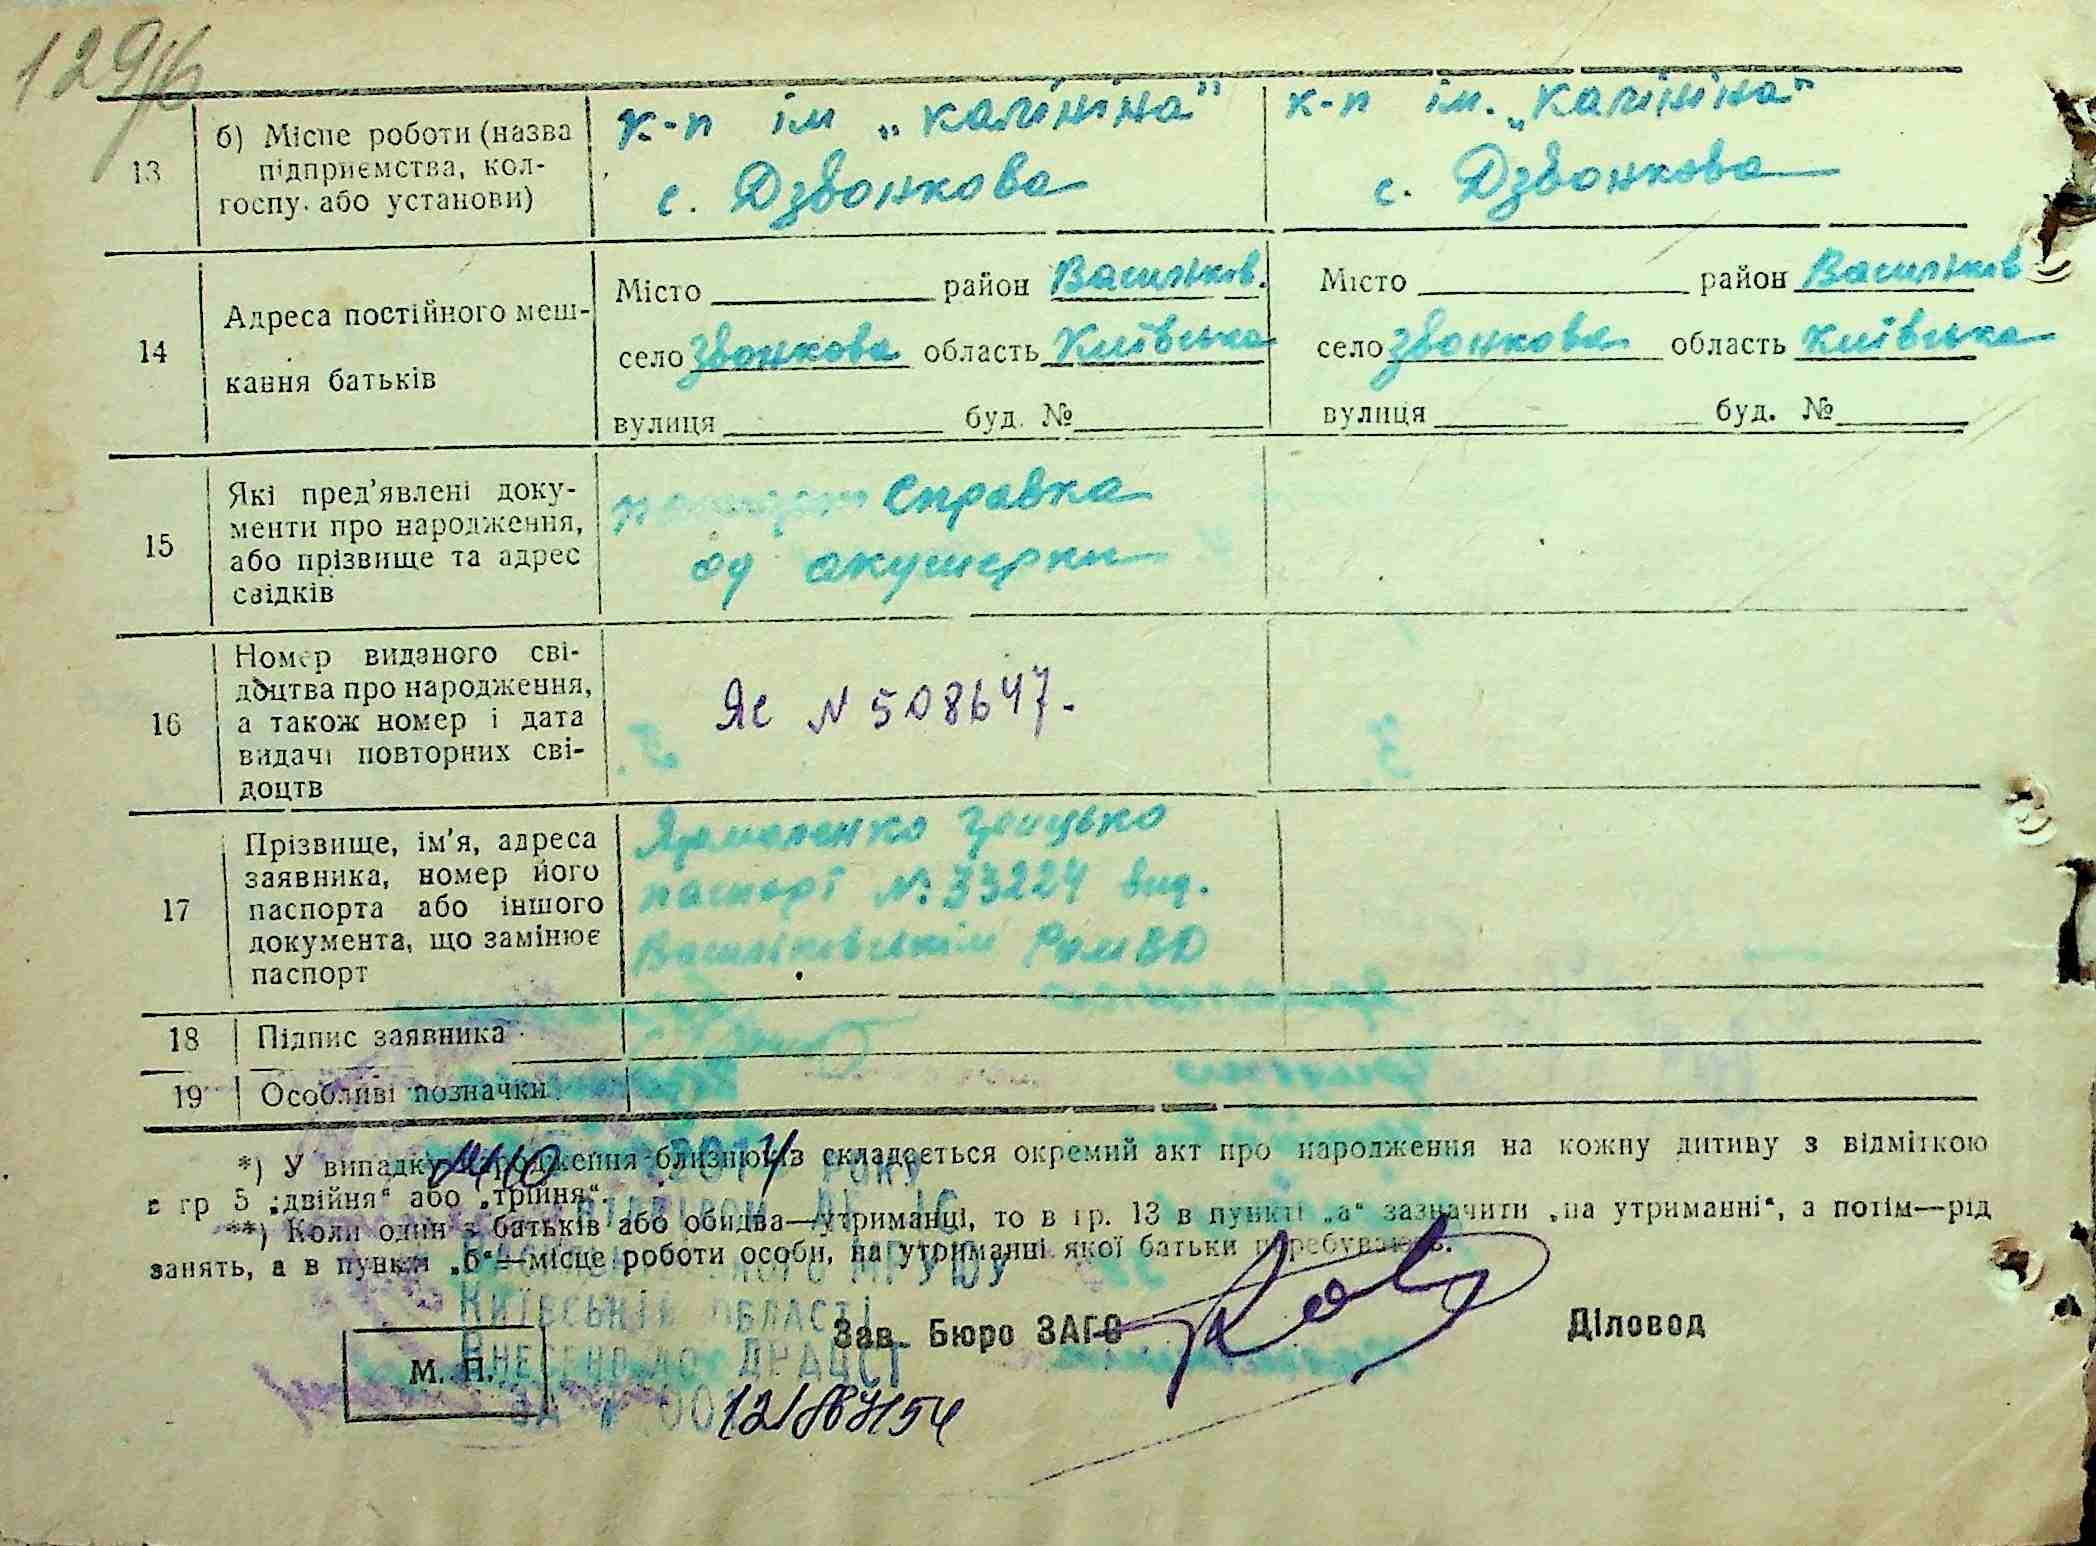 129/б
13 б) Місце роботи (назва підприємства, колгоспу. або установи)
к-п ім „Калініна"
с. Дзвонкова
к-п ім. „Калініна"
с. Дзвонкова
14 Адреса постійного мешкання батьків
Місто район Васильков.
село Звонкова область Київська
вулиця буд. №
Місто район Васильков
село Звонкова область Київська
вулиця буд. №
15 Які пред'явлені документи про народження, або прізвище та адрес свідків
Справка
од акушерки
16 Номер виданого свідоцтва про народження, а також номер і дата видачі повторних свідоцтв
ЯС N 508647.
17 Прізвище, ім'я, адреса заявника, номер його паспорта або іншого документа, що замінює паспорт
Ярмоленко Грицько
паспорт №: 33224 вид.
Васильківським РомВД
18 Підпис заявника
19 Особливі позначки
*) У випадку народження близнюків складається окремий акт про народження на кожну дитину з відміткою
в гр 5 „двійня" або „трійня".
**) Коли один з батьків або обидва—утриманці, то в гр. 13 в пункті „а" зазначити „на утриманні", а потім—рід
занять, а в пункті „б"—місце роботи особи, на утриманні якої батьки перебувають.
РОКУ
МРУЮ
Київській області
Зав. Бюро ЗАГС
Діловод
Внесено до ДРАЦСГ
М. П.
за № 001